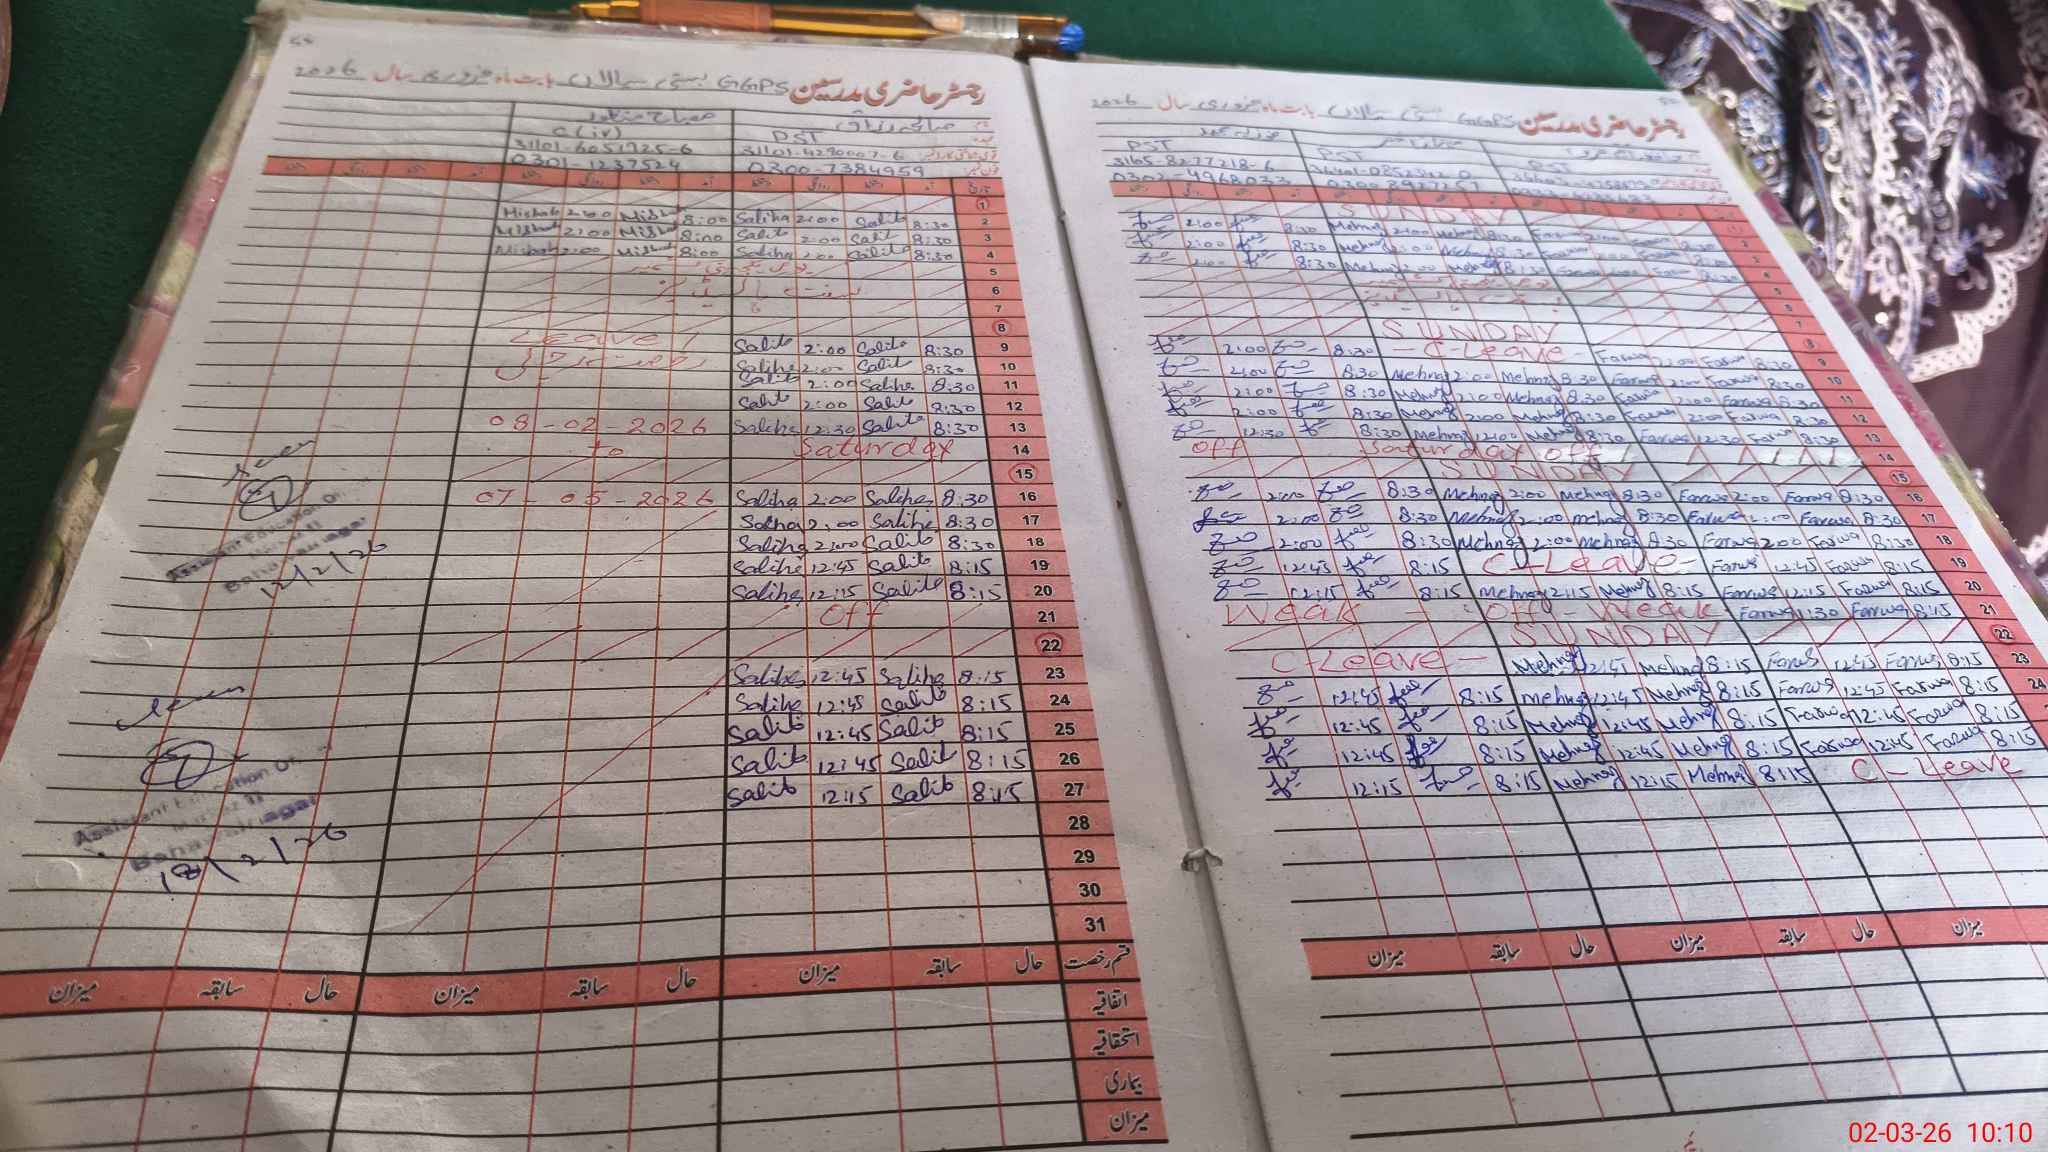 رجسٹر حاضری مدرسین GGPS بستی سیالاں بابت ماہ فروری سال 2026
PST
C (iv)
31101-4290007-6
31101-6051925-6
0300-7384959
0301-1237524
1
2 8:30 Salih 2:00 Saliha 8:00 Misbah 2:00 Misbah
3 8:30 Salih 2:00 Salih 8:00 Misbah 2:00 Misbah
4 8:30 Salih 2:00 Saliha 8:00 Misbah 2:00 Misbah
5
6
7
8
9 8:30 Salih 2:00 Salih Leave
10 8:30 Salih 2:00 Saliha
11 8:30 Saliha 2:00 Salih
12 8:30 Salih 2:00 Salih
13 8:30 Saliha 12:30 Saliha 08-02-2026
14 Saturday to
15
16 8:30 Saliha 2:00 Saliha 07-05-2026
17 8:30 Salihe 2:00 Saliha
18 8:30 Salih 2:00 Saliha
19 8:15 Salih 12:45 Salihe
20 8:15 Salih 12:15 Saliha
21 Off
22
23 8:15 Saliha 12:45 Saliha
24 8:15 Salih 12:45 Salihe
25 8:15 Salih 12:45 Salih
26 8:15 Salih 12:45 Salih
27 8:15 Salih 12:15 Salih
28
29
30
31
قسم رخصت حال سابقہ میزان حال سابقہ میزان حال سابقہ میزان
اتفاقیہ
استحقاقیہ
بیماری
میزان
Assistant Education
Bahawalnagar
12/2/26
Assistant Education
Bahawalnagar
18/2/26
رجسٹر حاضری مدرسین GGPS بستی سیالاں بابت ماہ فروری سال 2026
PST
PST
PST
31105-8277218-6
SUNDAY
8:30 2:00
8:30 2:00
8:30 2:00
SUNDAY
9 8:30 Farwa 2:00 Farwa - C-Leave - 8:30 2:00
10 8:30 Farwa 2:00 Farwa 8:30 Mehnaz 2:00 Mehnaz 8:30 2:00
11 8:30 Farwa 2:00 Farwa 8:30 Mehnaz 2:00 Mehnaz 8:30 2:00
12 8:30 Farwa 2:00 Farwa 8:30 Mehnaz 2:00 Mehnaz 8:30 2:00
13 8:30 Farwa 12:30 Farwa 8:30 Mehnaz 12:00 Mehnaz 8:30 12:30
14 off Saturday off
15 SUNDAY
16 8:30 Farwa 2:00 Farwa 8:30 Mehnaz 2:00 Mehnaz 8:30 2:00
17 8:30 Farwa 2:00 Farwa 8:30 Mehnaz 2:00 Mehnaz 8:30 2:00
18 8:30 Farwa 2:00 Farwa 8:30 Mehnaz 2:00 Mehnaz 8:30 2:00
19 8:15 Farwa 12:45 Farwa C-Leave- 8:15 12:45
20 8:15 Farwa 12:15 Farwa 8:15 Mehnaz 12:15 Mehnaz 8:15 12:15
21 8:15 Farwa 11:30 Farwa Weak - Off - Weak
22 SUNDAY
23 8:15 Farwa 12:45 Farwa 8:15 Mehnaz 12:45 Mehnaz C-Leave -
24 8:15 Farwa 12:45 Farwa 8:15 Mehnaz 12:45 Mehnaz 8:15 12:45
8:15 Farwa 12:45 Farwa 8:15 Mehnaz 12:45 Mehnaz 8:15 12:45
8:15 Farwa 12:45 Farwa 8:15 Mehnaz 12:45 Mehnaz 8:15 12:45
C-Leave 8:15 Mehnaz 12:15 Mehnaz 8:15 12:15
میزان حال سابقہ میزان حال سابقہ میزان
02-03-26 10:10